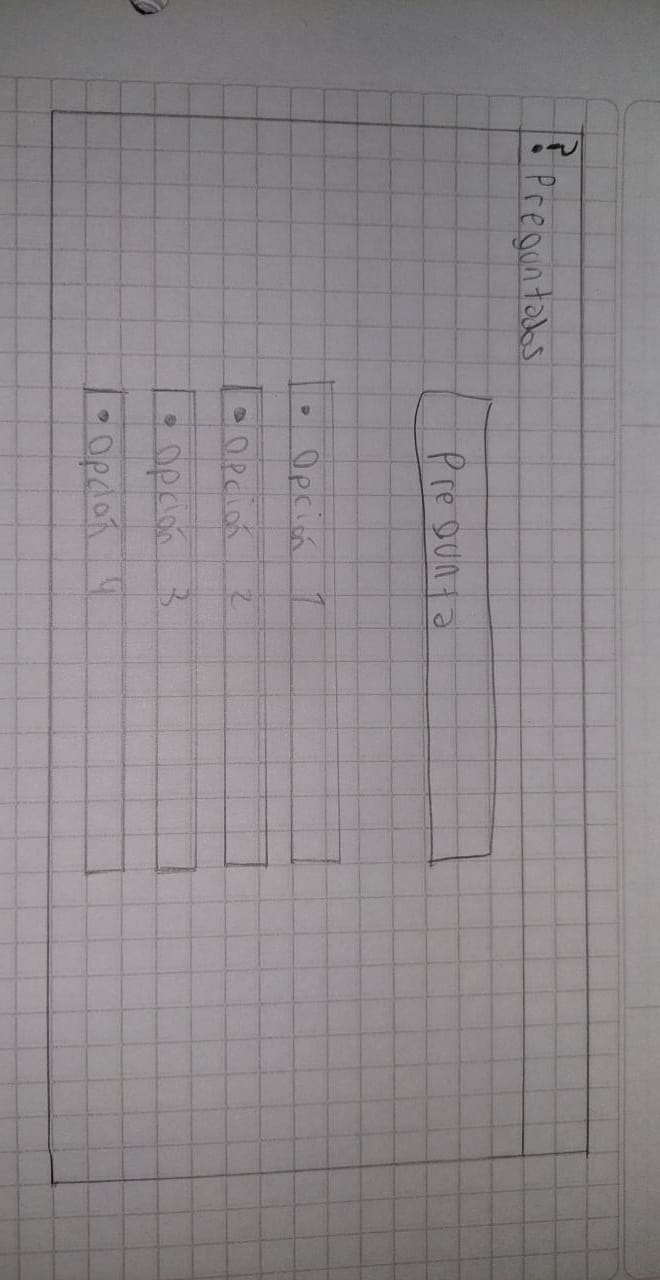 ? Preguntados
Pregunta
• Opción 1
• Opción 2
• Opción 3
• Opción 4